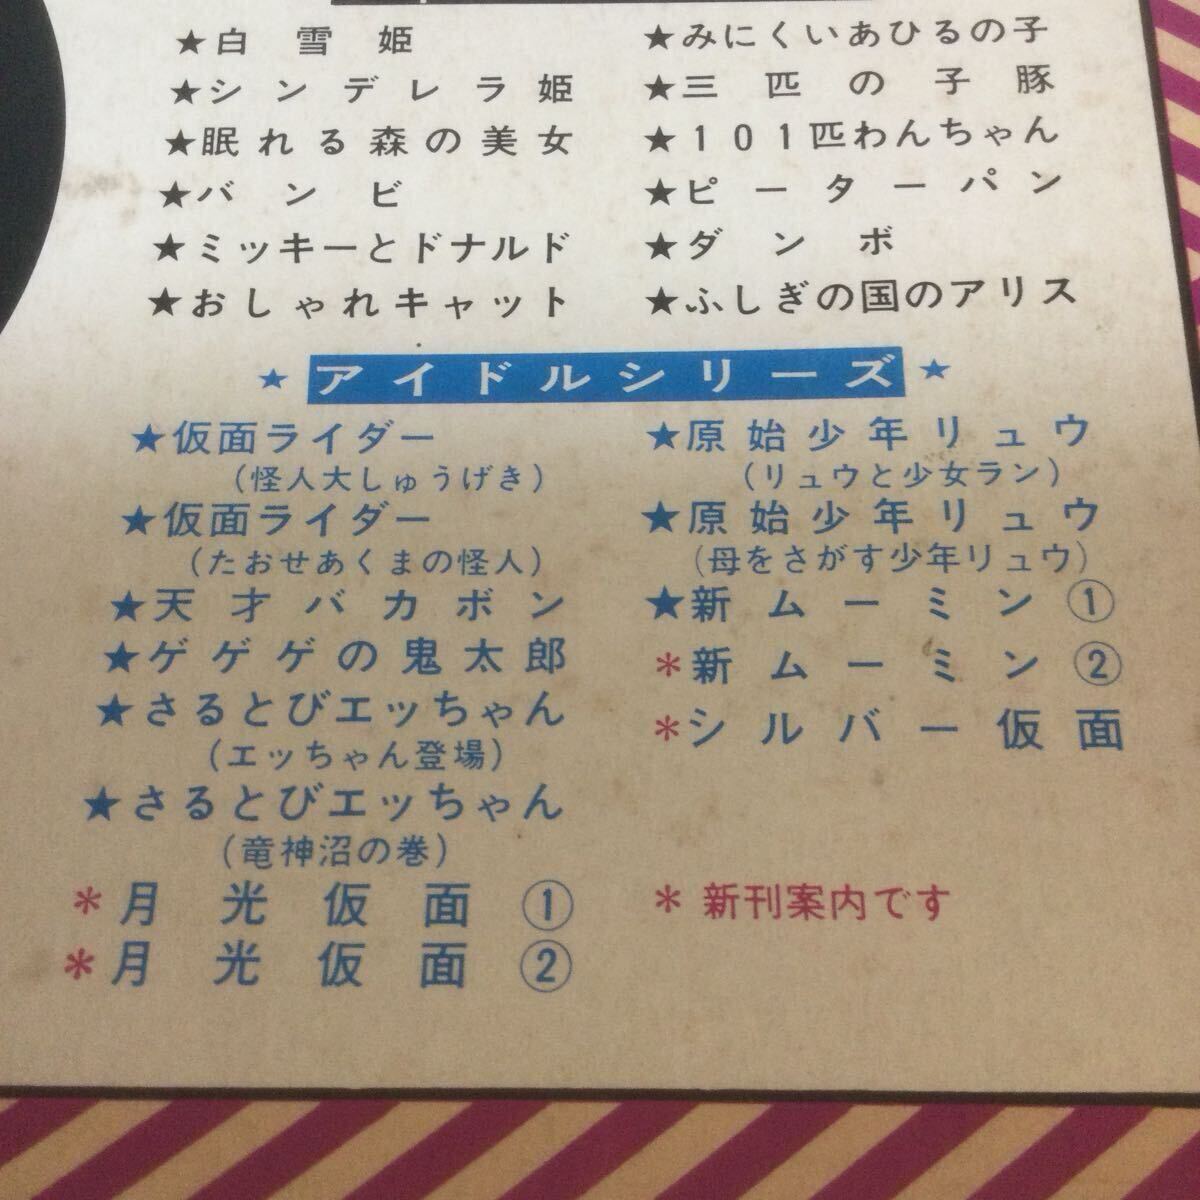 ★白雪姫
★シンデレラ姫
★眠れる森の美女
★バンビ
★ミッキーとドナルド
★おしゃれキャット
★みにくいあひるの子
★三匹の子豚
★101匹わんちゃん
★ピーターパン
★ダンボ
★ふしぎの国のアリス
★アイドルシリーズ★
★仮面ライダー
(怪人大しゅうげき)
★仮面ライダー
(たおせあくまの怪人)
★天才バカボン
★ゲゲゲの鬼太郎
★さるとびエッちゃん
(エッちゃん登場)
★さるとびエッちゃん
(竜神沼の巻)
*月光仮面①
*月光仮面②
★原始少年リュウ
(リュウと少女ラン)
★原始少年リュウ
(母をさがす少年リュウ)
★新ムーミン①
*新ムーミン②
*シルバー仮面
*新刊案内です